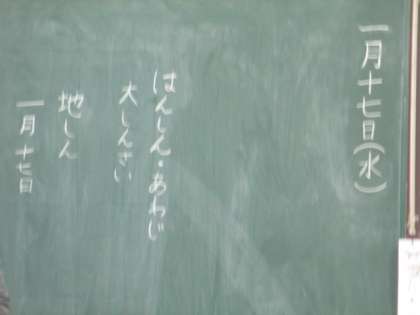 一月十七日(水)
はんしん・あわじ
大しんさい
地しん
一月十七日